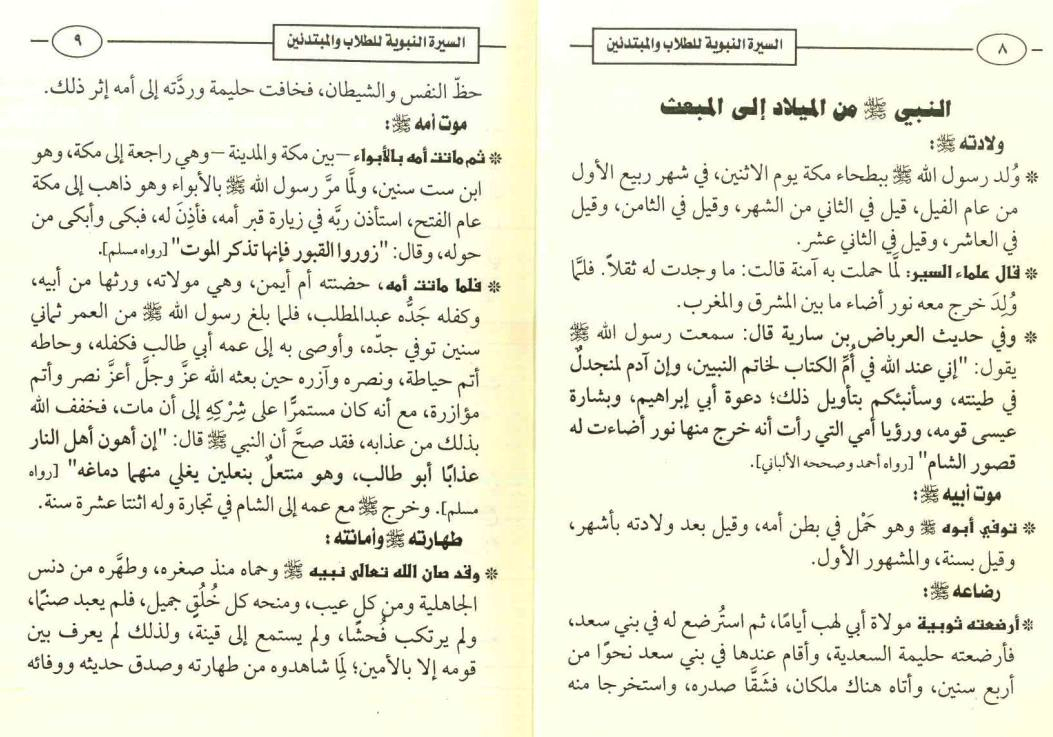 السيرة النبوية للطلاب والمبتدئين
٨
النبي ﷺ من الميلاد إلى المبعث
ولادته ﷺ:
* وُلد رسول الله ﷺ ببطحاء مكة يوم الاثنين، في شهر ربيع الأول
من عام الفيل، قيل في الثاني من الشهر، وقيل في الثامن، وقيل
في العاشر، وقيل في الثاني عشر.
* قال علماء السير: لمَّا حملت به آمنة قالت: ما وجدت له ثقلاً. فلمَّا
وُلِدَ خرج معه نور أضاء ما بين المشرق والمغرب.
* وفي حديث العرباض بن سارية قال: سمعت رسول الله ﷺ
يقول: "إني عند الله في أمِّ الكتاب لخاتم النبيين، وإن آدم لمنجدلٌ
في طينته، وسأنبئكم بتأويل ذلك؛ دعوة أبي إبراهيم، وبشارة
عيسى قومه، ورؤيا أمي التي رأت أنه خرج منها نور أضاءت له
قصور الشام" [رواه أحمد وصححه الألباني].
موت أبيه ﷺ:
* توفي أبوه ﷺ وهو حَمْل في بطن أمه، وقيل بعد ولادته بأشهر،
وقيل بسنة، والمشهور الأول.
رضاعه ﷺ:
* أرضعته ثويبة مولاة أبي لهب أيامًا، ثم استُرضع له في بني سعد،
فأرضعته حليمة السعدية، وأقام عندها في بني سعد نحوًا من
أربع سنين، وأتاه هناك ملكان، فشَقَّا صدره، واستخرجا منه
السيرة النبوية للطلاب والمبتدئين
٩
حظّ النفس والشيطان، فخافت حليمة وردَّته إلى أمه إثر ذلك.
موت أمه ﷺ:
* ثم ماتت أمه بالأبواء –بين مكة والمدينة –وهي راجعة إلى مكة، وهو
ابن ست سنين، ولمَّا مرَّ رسول الله ﷺ بالأبواء وهو ذاهب إلى مكة
عام الفتح، استأذن ربَّه في زيارة قبر أمه، فأذِنَ له، فبكى وأبكى من
حوله، وقال: "زوروا القبور فإنها تذكر الموت" [رواه مسلم].
* فلما ماتت أمه، حضنته أم أيمن، وهي مولاته، ورثها من أبيه،
وكفله جَدُّه عبدالمطلب، فلما بلغ رسول الله ﷺ من العمر ثماني
سنين توفي جدّه، وأوصى به إلى عمه أبي طالب فكفله، وحاطه
أتم حياطة، ونصره وآزره حين بعثه الله عزَّ وجلَّ أعزَّ نصر وأتم
مؤازرة، مع أنه كان مستمرًّا على شِرْكِهِ إلى أن مات، فخفف الله
بذلك من عذابه، فقد صحَّ أن النبي ﷺ قال: "إن أهون أهل النار
عذابًا أبو طالب، وهو منتعلٌ بنعلين يغلي منهما دماغه" [رواه
مسلم]. وخرج ﷺ مع عمه إلى الشام في تجارة وله اثنتا عشرة سنة.
طهارته ﷺ وأمانته:
* وقد صان الله تعالى نبيه ﷺ وحماه منذ صغره، وطهَّره من دنس
الجاهلية ومن كل عيب، ومنحه كل خُلُقٍ جميل، فلم يعبد صنمًا،
ولم يرتكب فُحشًا، ولم يستمع إلى قينة، ولذلك لم يعرف بين
قومه إلا بالأمين؛ لِمَا شاهدوه من طهارته وصدق حديثه ووفائه